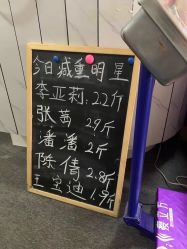 今日减重明星
李亚莉:22斤
张茜 29斤
潘潘 2斤
陈倩 2.8斤
王宝迪 1.9斤